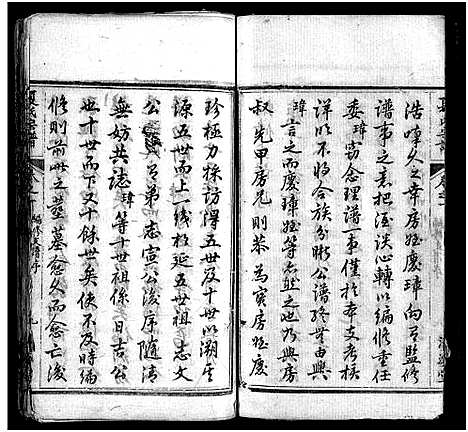 浩嘆久之幸房姪慶璋向有監修
譜事之意把酒談心轉以編修重任
委璋竊念理譜一事僅於本支考核
詳明不收合族分晰公譜終無由興
璋言之而慶璋姪等忠然之也乃與房
叔先甲房兄則恭為實房姪慶
珍極力採訪得五世及十世以溯其
源五世而上一線相延五世祖志文
公弟志宣公後序隨清
無妨共誌璋等十世祖係日吉公
也十世而下又十餘世矣使不及時編
修則前此之塋墓愈久而愈亡後
夏氏宗譜
編修支譜序